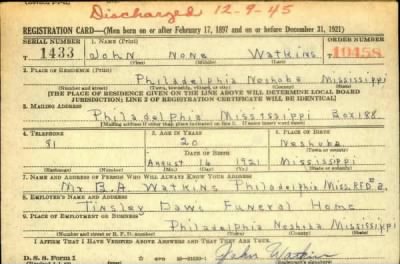 Discharged 12-9-45
REGISTRATION CARD—(Men born on or after February 17, 1897 and on or before December 31, 1921)
SERIAL NUMBER 1. NAME (Print) ORDER NUMBER
1433 John None Watkins 10458
(First) (Middle) (Last)
2. PLACE OF RESIDENCE (Print)
Philadelphia Neshoba Mississippi
(Number and street) (Town, township, village, or city) (County) (State)
[THE PLACE OF RESIDENCE GIVEN ON THE LINE ABOVE WILL DETERMINE LOCAL BOARD
JURISDICTION; LINE 2 OF REGISTRATION CERTIFICATE WILL BE IDENTICAL]
3. MAILING ADDRESS
Philadelphia Mississippi Box 188
[Mailing address if other than place indicated on line 2. If same insert word same]
4. TELEPHONE 5. AGE IN YEARS 6. PLACE OF BIRTH
81 20 Neshoba
DATE OF BIRTH (Town or county)
August 16 1921 Mississippi
(Mo.) (Day) (Yr.) (State or country)
7. NAME AND ADDRESS OF PERSON WHO WILL ALWAYS KNOW YOUR ADDRESS
Mr. B.A. Watkins Philadelphia Miss. RFD 2
8. EMPLOYER'S NAME AND ADDRESS
Tinsley Dawi Funeral Home
9. PLACE OF EMPLOYMENT OR BUSINESS
Philadelphia Neshoba Mississippi
(Number and street or R. F. D. number) (Town) (County) (State)
I AFFIRM THAT I HAVE VERIFIED ABOVE ANSWERS AND THAT THEY ARE TRUE.
D. S. S. Form 1 John Watkins